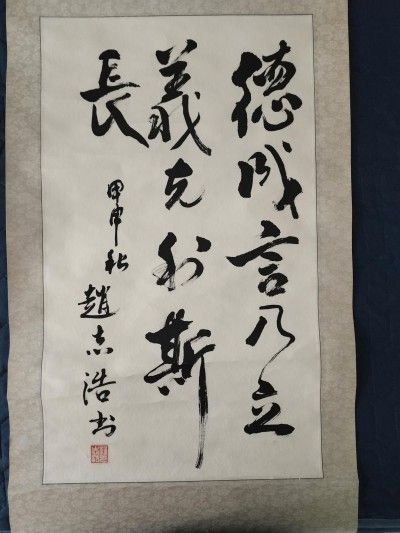 德成言乃立
義克利斯
長
甲申秋
趙志浩书